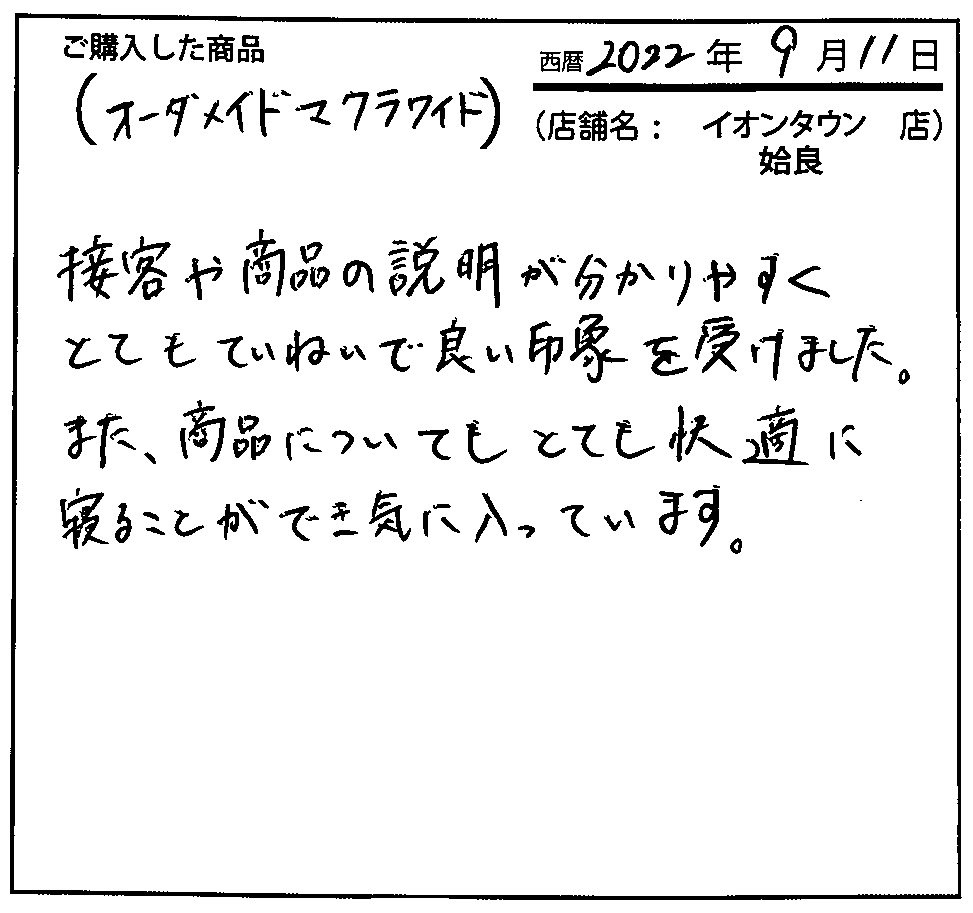 ご購入した商品
(オーダメイドマクラワイド)
西暦2022年9月11日
(店舗名: イオンタウン 店)
姶良
接客や商品の説明が分かりやすく
とてもていねいで良い印象を受けました。
また、商品についてもとても快適に
寝ることができ気に入っています。